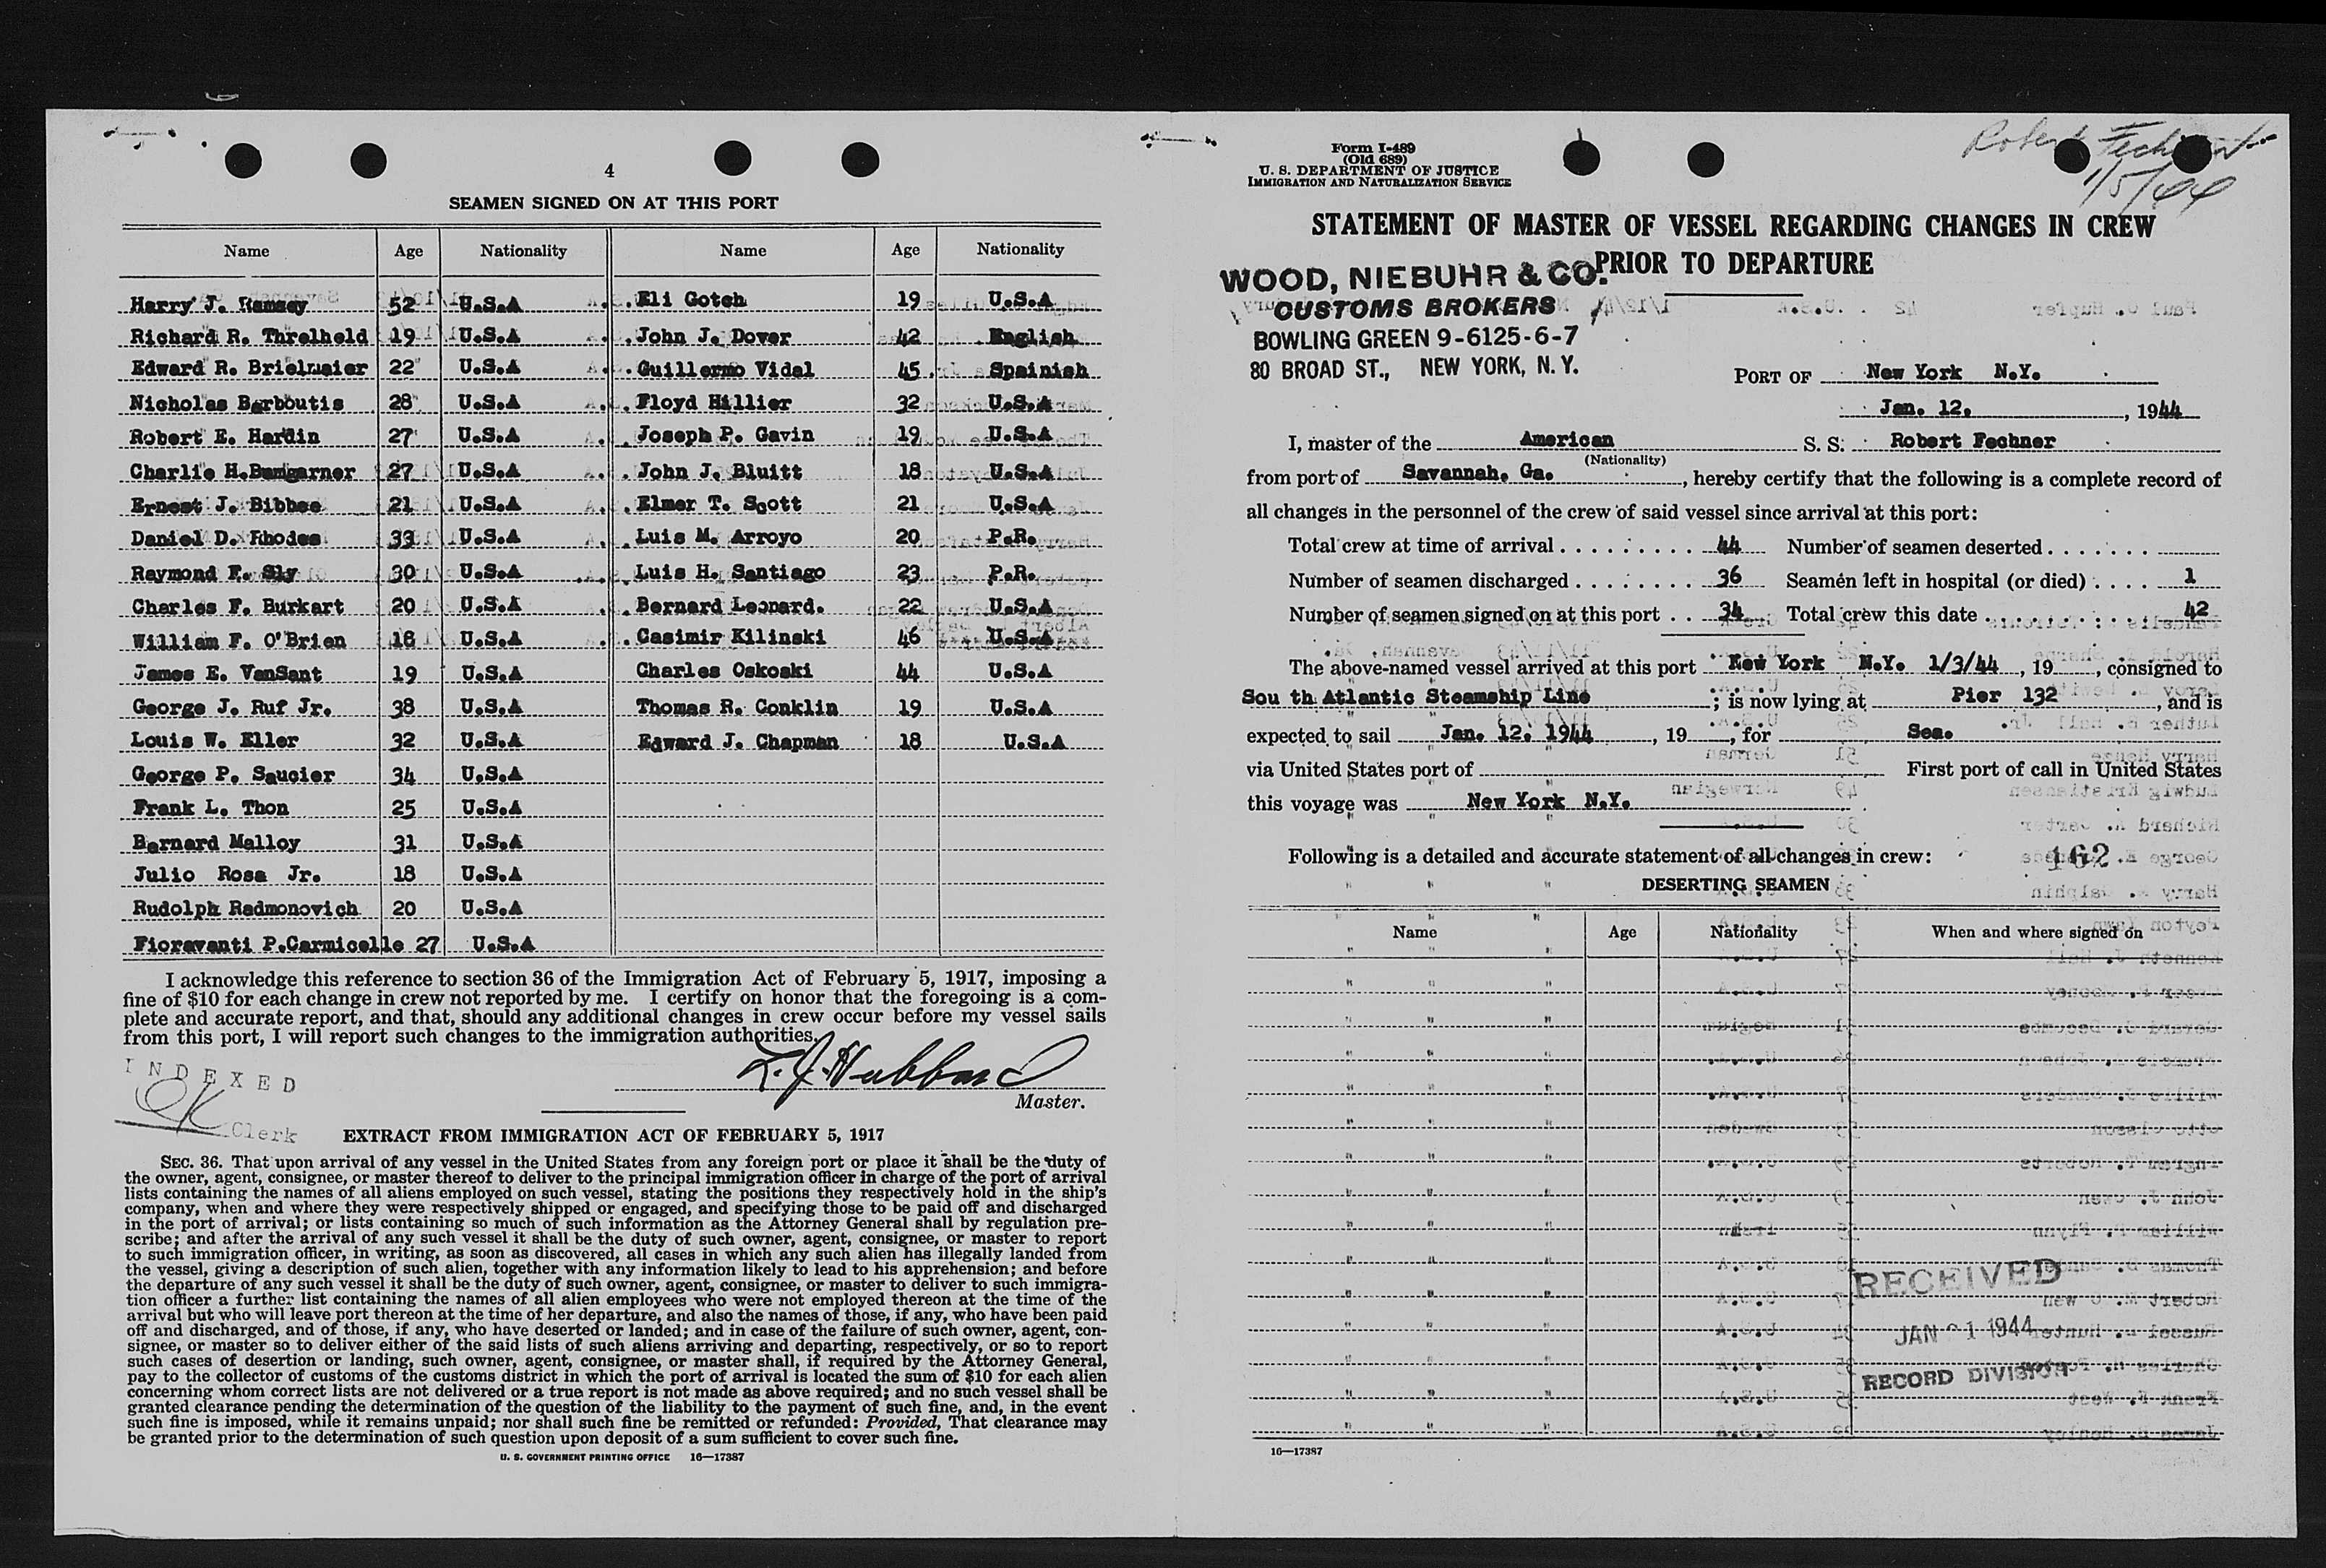 4
SEAMEN SIGNED ON AT THIS PORT
Name Age Nationality Name Age Nationality
Harry J. Ramsey 52 U.S.A Eli Gotch 19 U.S.A
Richard R. Threlheld 19 U.S.A John J. Dover 42 English
Edward R. Brielmaier 22 U.S.A Guillermo Vidal 45 Spainish
Nicholas Barboutis 28 U.S.A Floyd Hillier 32 U.S.A
Robert E. Hardin 27 U.S.A Joseph P. Gavin 19 U.S.A
Charlie H.Bumgarner 27 U.S.A John J. Bluitt 18 U.S.A
Ernest J. Bibbee 21 U.S.A Elmer T. Scott 21 U.S.A
Daniel D. Rhodes 33 U.S.A Luis M. Arroyo 20 P.R.
Raymond F. Sly 30 U.S.A Luis H. Santiago 23 P.R.
Charles F. Burkart 20 U.S.A Bernard Leonard. 22 U.S.A
William F. O'Brien 18 U.S.A Casimir Kilinski 46 U.S.A
James E. VanSant 19 U.S.A Charles Oskoski 44 U.S.A
George J. Ruf Jr. 38 U.S.A Thomas R. Conklin 19 U.S.A
Louis W. Eller 32 U.S.A Edward J. Chapman 18 U.S.A
George P. Saucier 34 U.S.A
Frank L. Thon 25 U.S.A
Bernard Malloy 31 U.S.A
Julio Rosa Jr. 18 U.S.A
Rudolph Radmonovich 20 U.S.A
Fioravanti P.Carmicelle 27 U.S.A
I acknowledge this reference to section 36 of the Immigration Act of February 5, 1917, imposing a
fine of $10 for each change in crew not reported by me. I certify on honor that the foregoing is a com-
plete and accurate report, and that, should any additional changes in crew occur before my vessel sails
from this port, I will report such changes to the immigration authorities.
L. J. Hubbard
Master.
INDEXED
OK
Clerk
EXTRACT FROM IMMIGRATION ACT OF FEBRUARY 5, 1917
SEC. 36. That upon arrival of any vessel in the United States from any foreign port or place it shall be the duty of
the owner, agent, consignee, or master thereof to deliver to the principal immigration officer in charge of the port of arrival
lists containing the names of all aliens employed on such vessel, stating the positions they respectively hold in the ship's
company, when and where they were respectively shipped or engaged, and specifying those to be paid off and discharged
in the port of arrival; or lists containing so much of such information as the Attorney General shall by regulation pre-
scribe; and after the arrival of any such vessel it shall be the duty of such owner, agent, consignee, or master to report
to such immigration officer, in writing, as soon as discovered, all cases in which any such alien has illegally landed from
the vessel, giving a description of such alien, together with any information likely to lead to his apprehension; and before
the departure of any such vessel it shall be the duty of such owner, agent, consignee, or master to deliver to such immigra-
tion officer a further list containing the names of all alien employees who were not employed thereon at the time of the
arrival but who will leave port thereon at the time of her departure, and also the names of those, if any, who have been paid
off and discharged, and of those, if any, who have deserted or landed; and in case of the failure of such owner, agent, con-
signee, or master so to deliver either of the said lists of such aliens arriving and departing, respectively, or so to report
such cases of desertion or landing, such owner, agent, consignee, or master shall, if required by the Attorney General,
pay to the collector of customs of the customs district in which the port of arrival is located the sum of $10 for each alien
concerning whom correct lists are not delivered or a true report is not made as above required; and no such vessel shall be
granted clearance pending the determination of the question of the liability to the payment of such fine, and, in the event
such fine is imposed, while it remains unpaid; nor shall such fine be remitted or refunded: Provided, That clearance may
be granted prior to the determination of such question upon deposit of a sum sufficient to cover such fine.
U. S. GOVERNMENT PRINTING OFFICE 16—17387
Form I-489
(Old 689)
U. S. DEPARTMENT OF JUSTICE
IMMIGRATION AND NATURALIZATION SERVICE
Robert Fechner
1/5/44
STATEMENT OF MASTER OF VESSEL REGARDING CHANGES IN CREW
PRIOR TO DEPARTURE
WOOD, NIEBUHR & CO.
CUSTOMS BROKERS
BOWLING GREEN 9-6125-6-7
80 BROAD ST., NEW YORK, N. Y.
PORT OF New York N.Y.
Jan. 12, , 1944
I, master of the American S. S. Robert Fechner
(Nationality)
from port of Savannah, Ga. , hereby certify that the following is a complete record of
all changes in the personnel of the crew of said vessel since arrival at this port:
Total crew at time of arrival . . . . . . . . . . 44 Number of seamen deserted . . . . . . . .
Number of seamen discharged . . . . . . . . 36 Seamen left in hospital (or died) . . . . 1
Number of seamen signed on at this port . . 34 Total crew this date . . . . . . . . . . 42
The above-named vessel arrived at this port New York N.Y. 1/3/44 , 19 , consigned to
Sou th Atlantic Steamship Line ; is now lying at Pier 132 , and is
expected to sail Jan. 12, 1944 , 19 , for Sea.
via United States port of First port of call in United States
this voyage was New York N.Y.
Following is a detailed and accurate statement of all changes in crew:
162
DESERTING SEAMEN
Name Age Nationality When and where signed on
RECEIVED
JAN 21 1944
RECORD DIVISION
16—17387